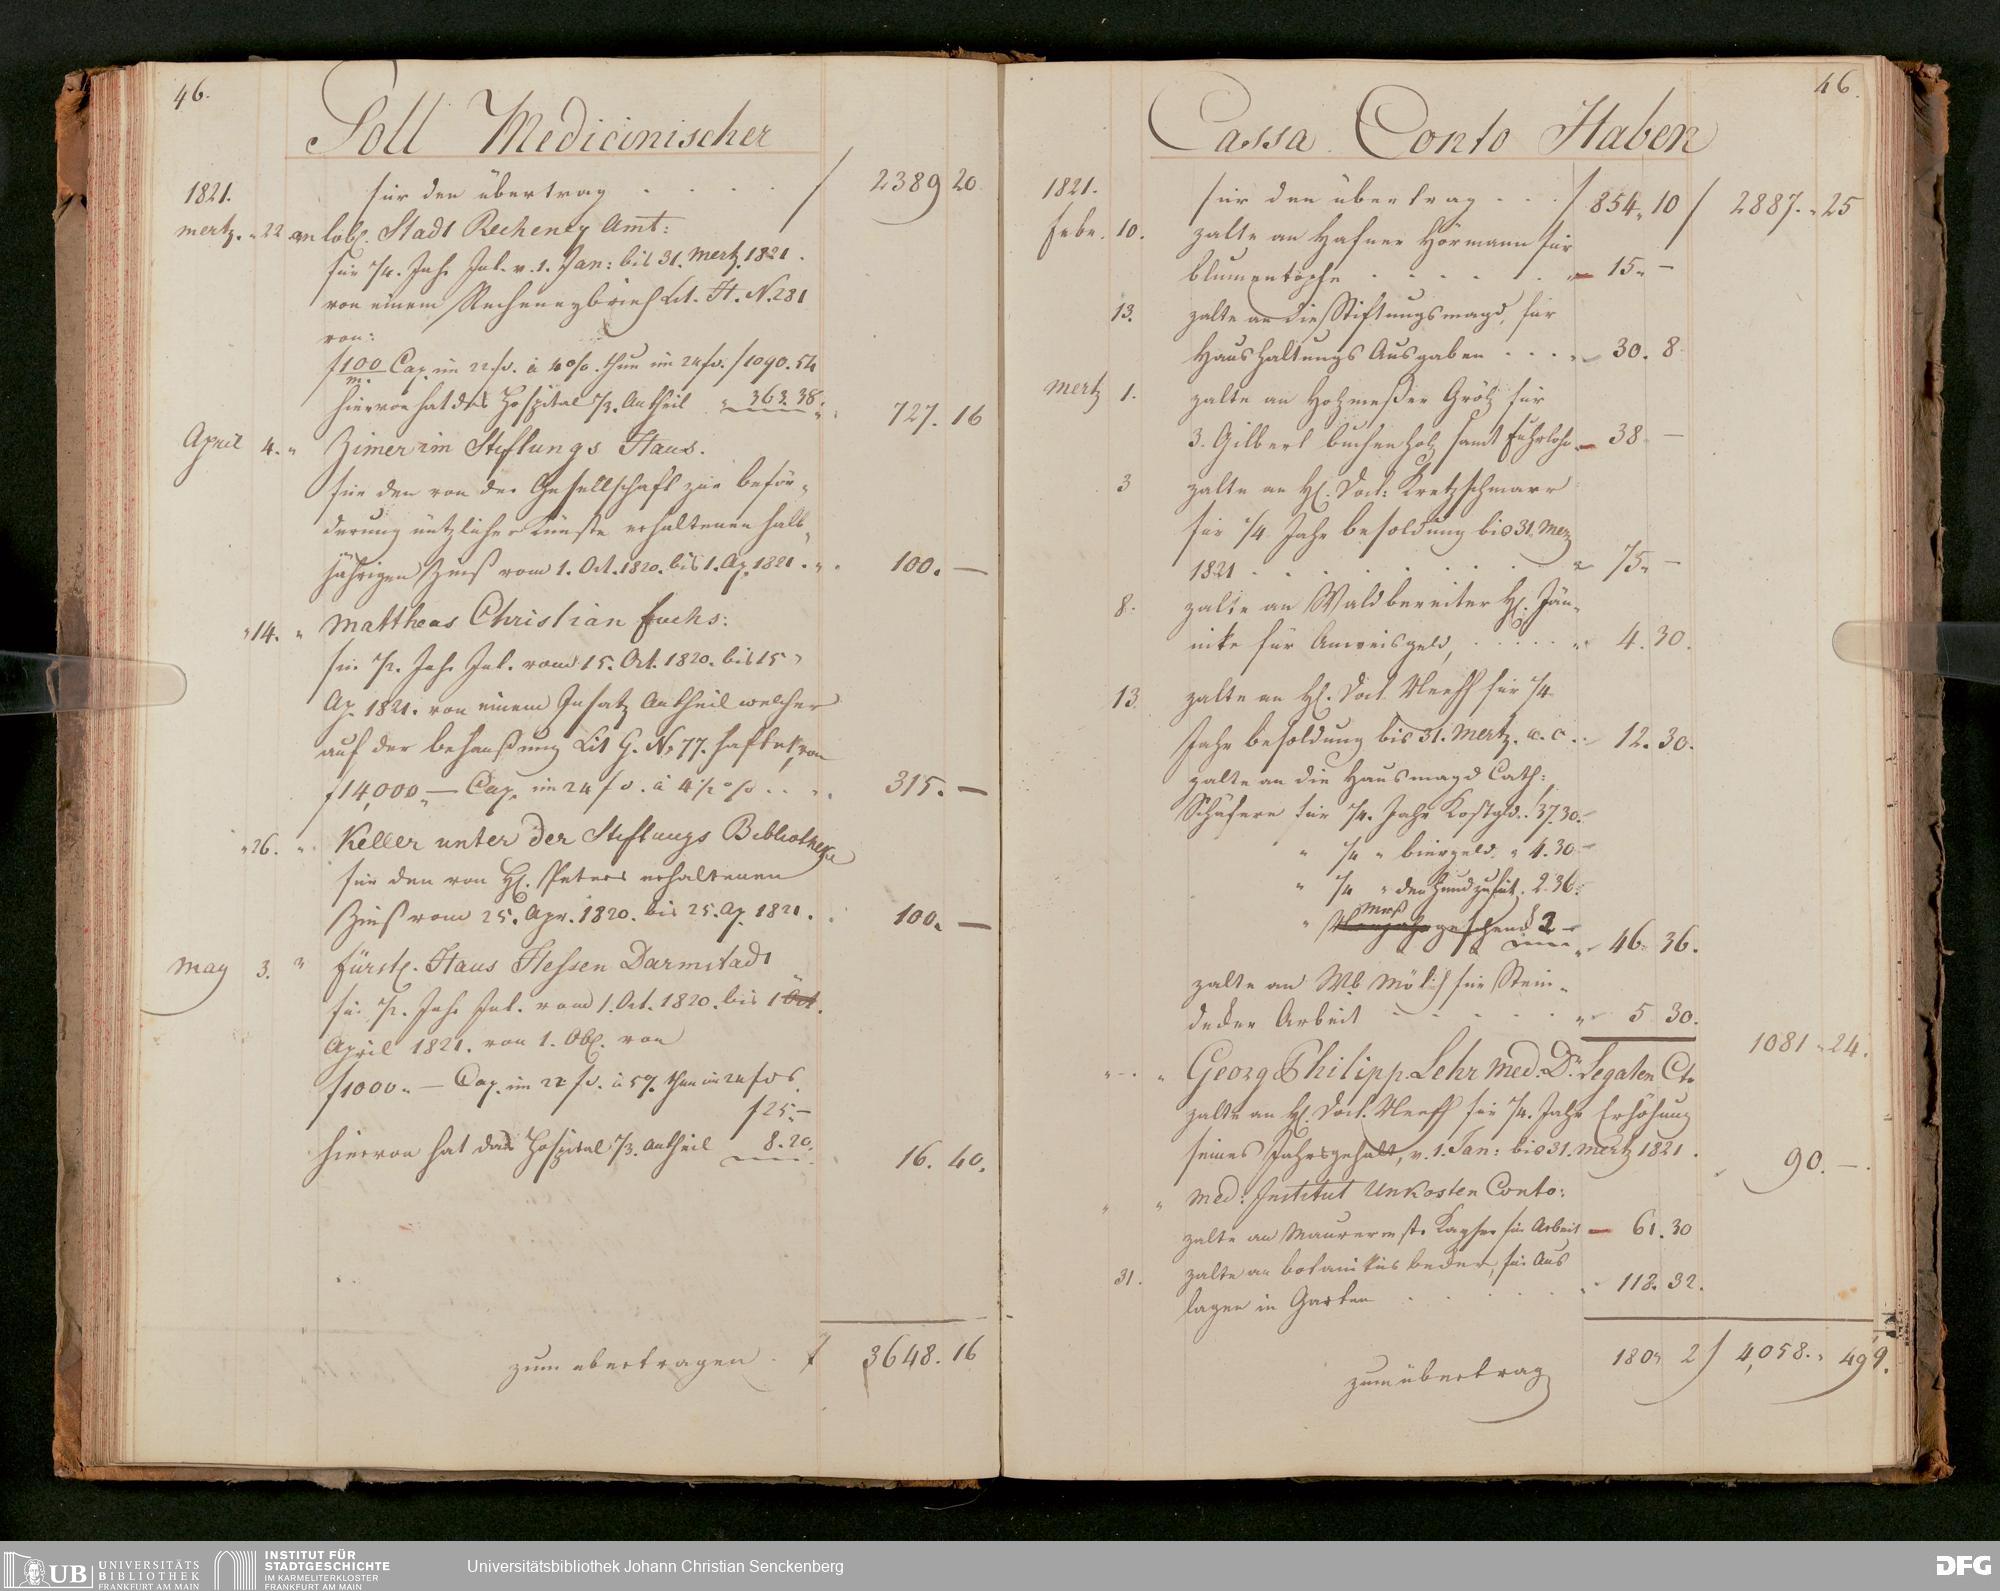 46.
Soll Medicinischer
1821. für den übertrag . . . . f 2389 20
mertz. " 22 an löbl. Stadt Recheney Amt:
für 1/4. Jahr Int. v. 1. Jan: bis 31. Mertz 1821.
von einem Recheneybrief Lit. H. N. 281
von:
f 100/m. Cap. im 22 f. à 4 %. thun im 24 f. f 1090. 54
hiervon hat das Hospital 1/3. Antheil " 363. 38. " 727. 16
April 4. " Zimer im Stiftungs Haus.
für den von der Gesellschaft zur beför-
derung nützlicher Künste erhaltenen halb-
jährigen Zinß vom 1. Oct. 1820. bis 1. Ap. 1821. " 100. —
" 14. " Mattheas Christian Fuchs:
für 1/2. Jahr Int. vom 15. Oct. 1820. bis 15
Ap. 1821. von einem Insatz Antheil welcher
auf der behaußung Lit G. No 77. haftet, von
f 14,000 " — Cap. im 24 f. à 4 1/2 % . . " 315. —
" 26. " Keller unter der Stiftungs Bibliotheke
für den von H. Peters erhaltenen
Zinß vom 25. Apr. 1820. bis 25. Ap. 1821. . 100. —
May 3. " fürstl. Haus Hessen Darmstadt
für 1/2. Jahr Int. vom 1. Oct. 1820. bis 1 Oct.
April 1821. von 1. Obl. von
f 1000. " — Cap. im 22 f. à 5 %. thun im 24 f
f 25. —
hiervon hat das Hospital 1/3. Antheil 8. 20. 16. 40.
zum übertragen . f 3648. 16
46.
Cassa Conto Haben
1821. für den übertrag . . . f 854. 10 f 2887. " 25
Febr. 10. zalte an Hafner Hörmann für
blumentöpfe . . . . . " 15. —
13. zalte an die Stiftungsmagd, für
Haushaltungs Ausgaben . . . " 30. 8.
Mertz 1. zalte an Holzmeßer Grötz für
3. Gilbert buchenholz samt Fuhrlohn " 38. —
3 zalte an H. Doct: Kretzschmarr
für 1/4 Jahr besoldung bis 31. Merz
1821 . . . . . . . " 75. —
8. zalte an Waldbereiter H. Jän-
nike für Anweisgeld, . . . . . " 4. 30.
13. zalte an H. Doct. Neeff für 1/4
Jahr besoldung bis 31. Mertz. a. c. . 12. 30.
zalte an die Hausmagd Cath:
Schäfern für 1/4. Jahr Kostgld. f 37. 30.
" 1/4 " biergeld. " 4. 30
" 1/4 " den Hund zu füt. 2. 36.
" Meß Neujahrgeschenck 2 — " 46. 36.
zalte an Wb. Mölich für Stein-
decker Arbeit . . . . . " 5 30. 1081 " 24.
" — . " Georg Philipp Lehr Med. Dr. Legaten Cto
zalte an H. Doct. Neeff für 1/4. Jahr Erhöhung
seines Jahrsgehalt, v. 1. Jan: bis 31. Mertz 1821. 90. — .
" " Med: Institut Unkosten Conto:
zalte an Maurermstr. Kayser für Arbeit 61. 30
31. zalte an botanikus becker, für Aus
lagen in Garten . . . . . " 118. 32.
zum übertrag 180. 2 f 4,058. " 49
UB UNIVERSITÄTS
BIBLIOTHEK
FRANKFURT AM MAIN
INSTITUT FÜR
STADTGESCHICHTE
IM KARMELITERKLOSTER
FRANKFURT AM MAIN
Universitätsbibliothek Johann Christian Senckenberg
DFG